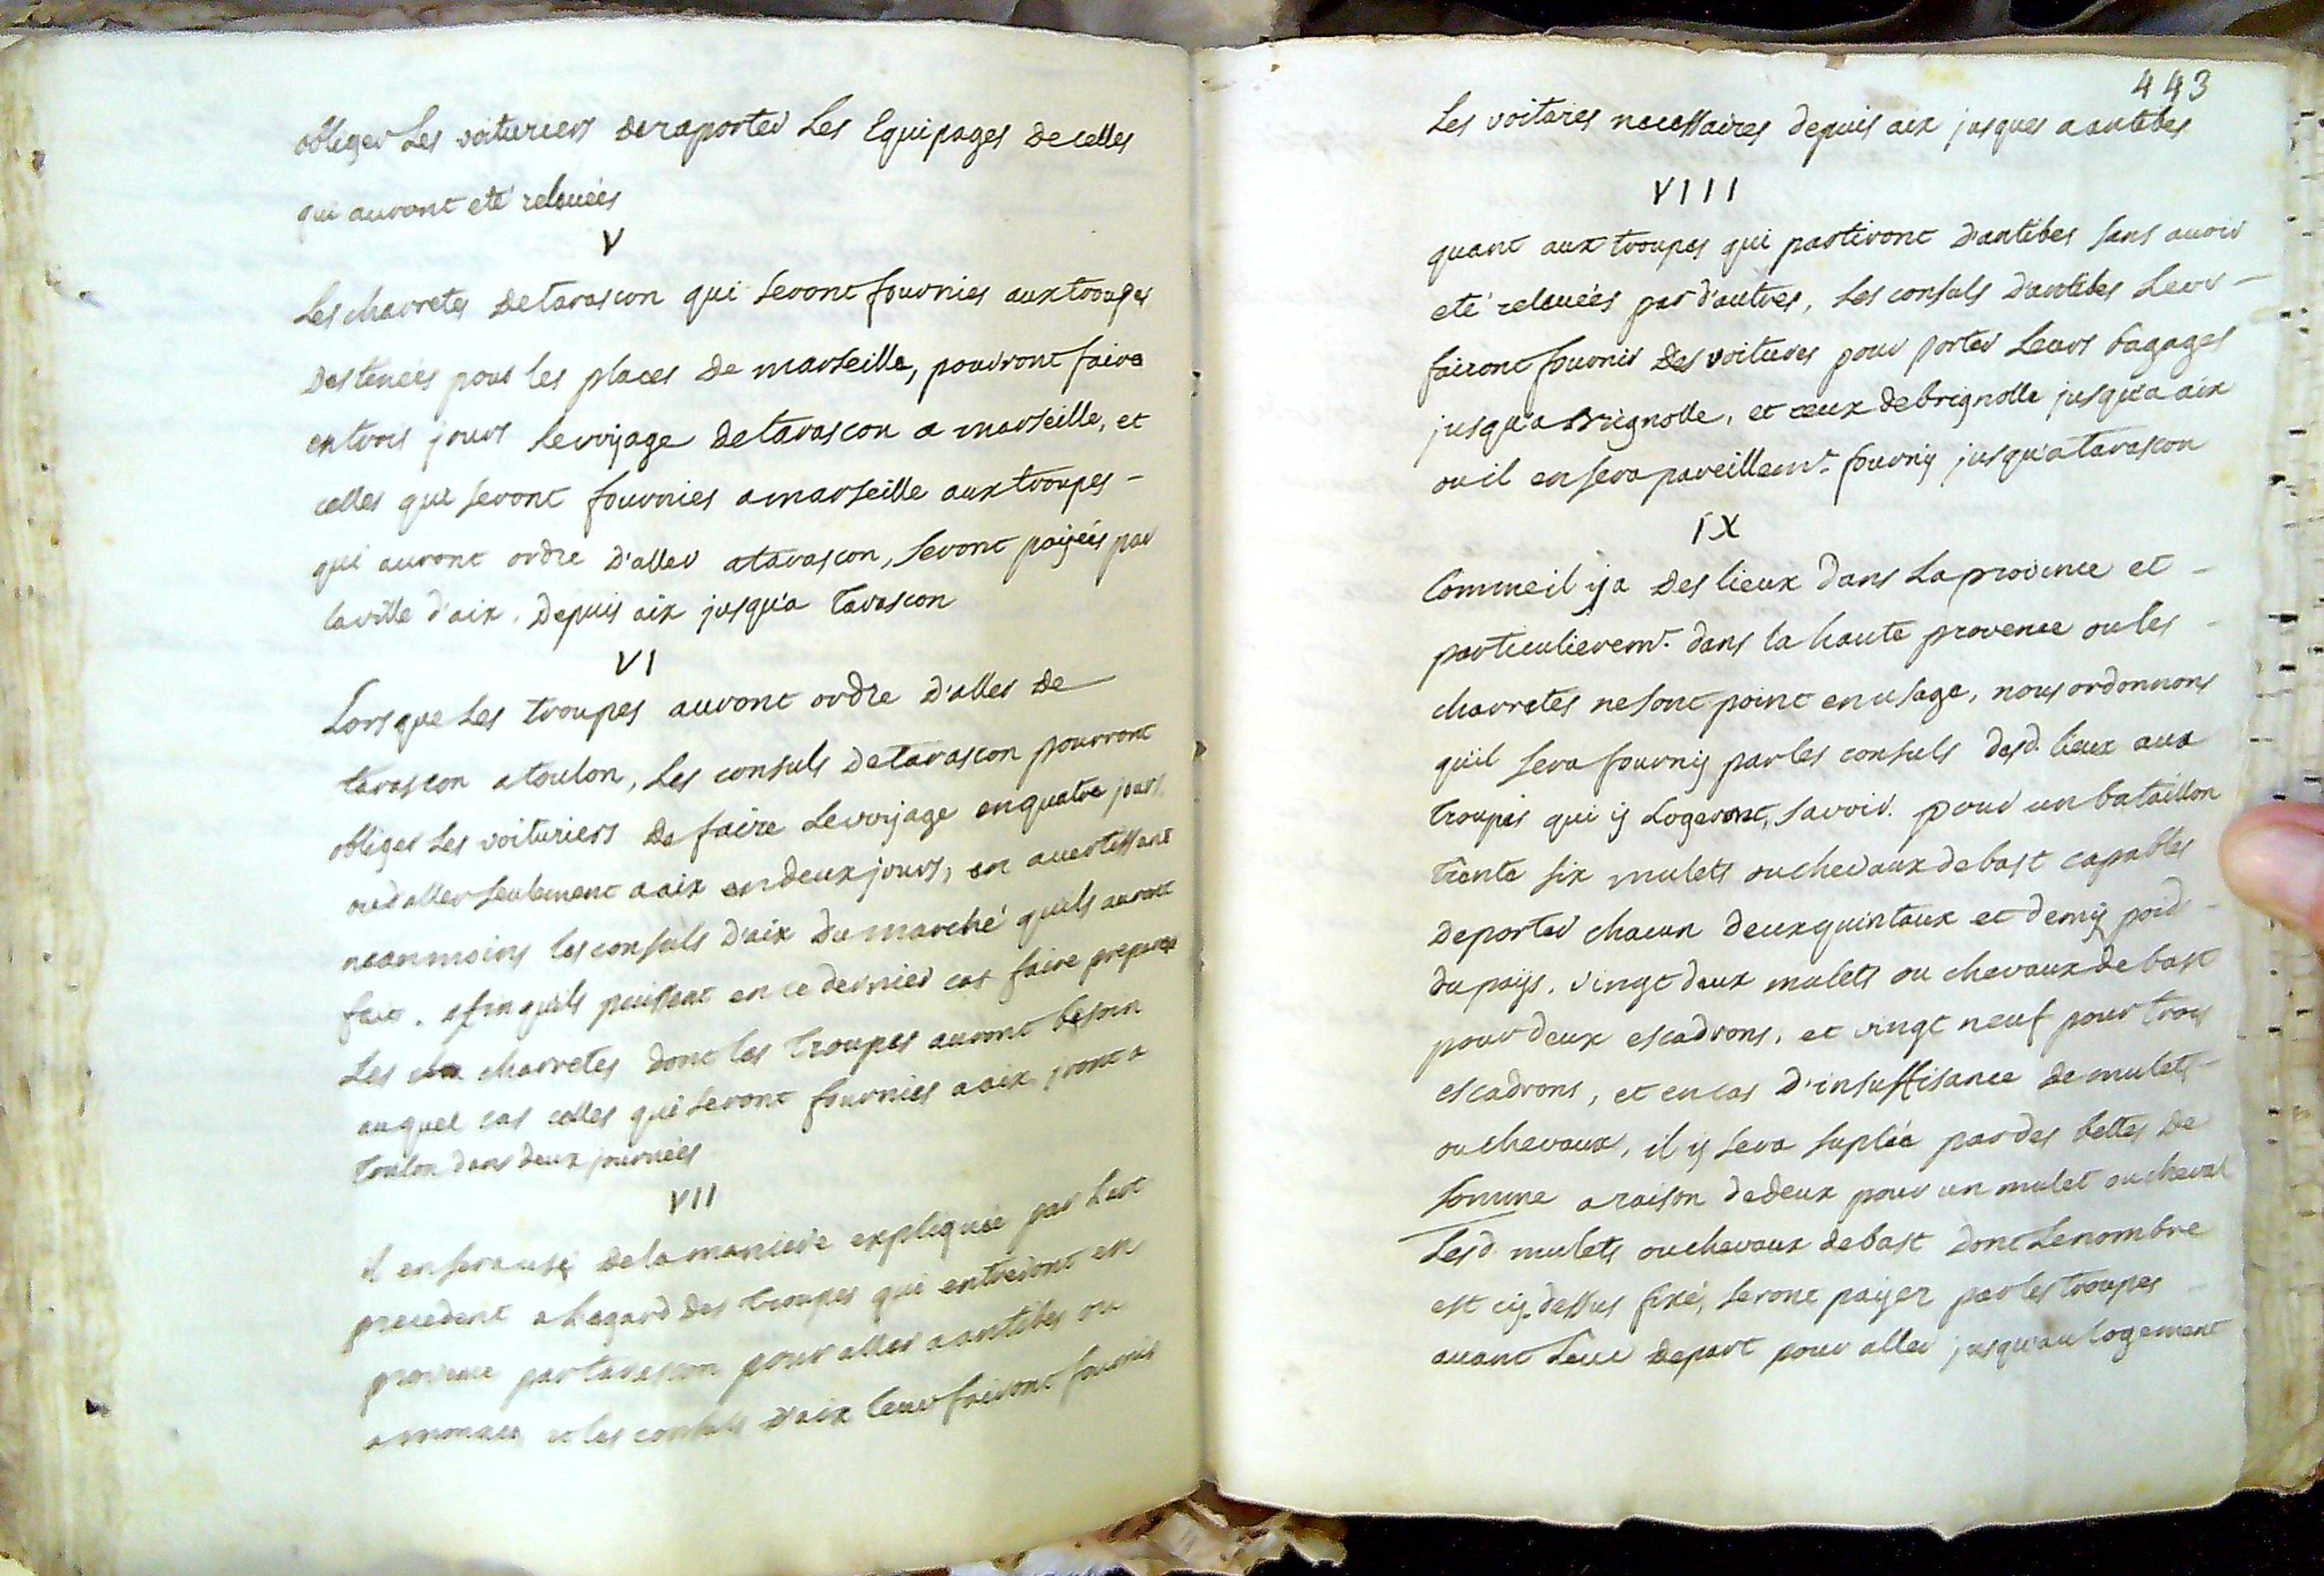 obliger les voituriers de raporter les Equipages de celles
qui auront eté releuées
V
Les charretes de tarascon qui seront fournies aux troupes
destinées pour les places de marseille, pourront faire
en trois jours le voyage de tarascon a marseille, et
celles qui seront fournies a marseille aux troupes -
qui auront ordre d'aller a tarascon, seront payées par
la ville d'aix. depuis aix jusqu'a tarascon
VI
Lorsque les troupes auront ordre d'aller de
tarascon a toulon, les consuls de tarascon pourront
obliger les voituriers de faire le voyage en quatre jours
ou d'aller seulement a aix en deux jours, en auertissant
neanmoins les consuls d'aix du marché qu'ils auront
fait. afin qu'ils puissent en ce dernier cas faire preparer
Les charretes dont les troupes auront besoin
auquel cas celles qui seront fournies a aix jront a
toulon dans deux journées
VII
il en sera usé de la maniere expliquée par l'art
precedent a l'egard des troupes qui entreront en
prouence par tarascon pour aller a antibes ou
a monaco et les consuls d'aix leur fairont fournir
443
Les voitures necessaires depuis aix jusques a antibes
VIII
quant aux troupes qui partiront d'antibes sans auoir
eté releuées par d'autres, les consuls d'antibes leur -
fairont fournir des voitures pour porter leurs bagages
jusqu'a Brignolle, et ceux de brignolle jusqu'a aix
ou il en sera pareillemt. fourny jusqu'a tarascon
IX
Comme il y a des lieux dans la prouince et -
particulieremt. dans la haute prouence ou les -
charretes ne sont point en usage, nous ordonnons
qu'il sera fourny par les consuls desd. lieux aux
troupes qui y logeront, savoir. pour un bataillon
trente six mulets ou chevaux de bast capables
de porter chacun deux quintaux et demy poid -
du pays. vingt deux mulets ou chevaux de bast
pour deux escadrons, et vingt neuf pour trois
escadrons, et en cas d'insuffisance de mulets -
ou chevaux, il y sera suplée par des bettes de
somme a raison de deux pour un mulet ou cheval
Lesd. mulets ou chevaux de bast dont le nombre
est cy dessus fixé, seront payer par les troupes
auant leur depart pour aller jusqu'au logement